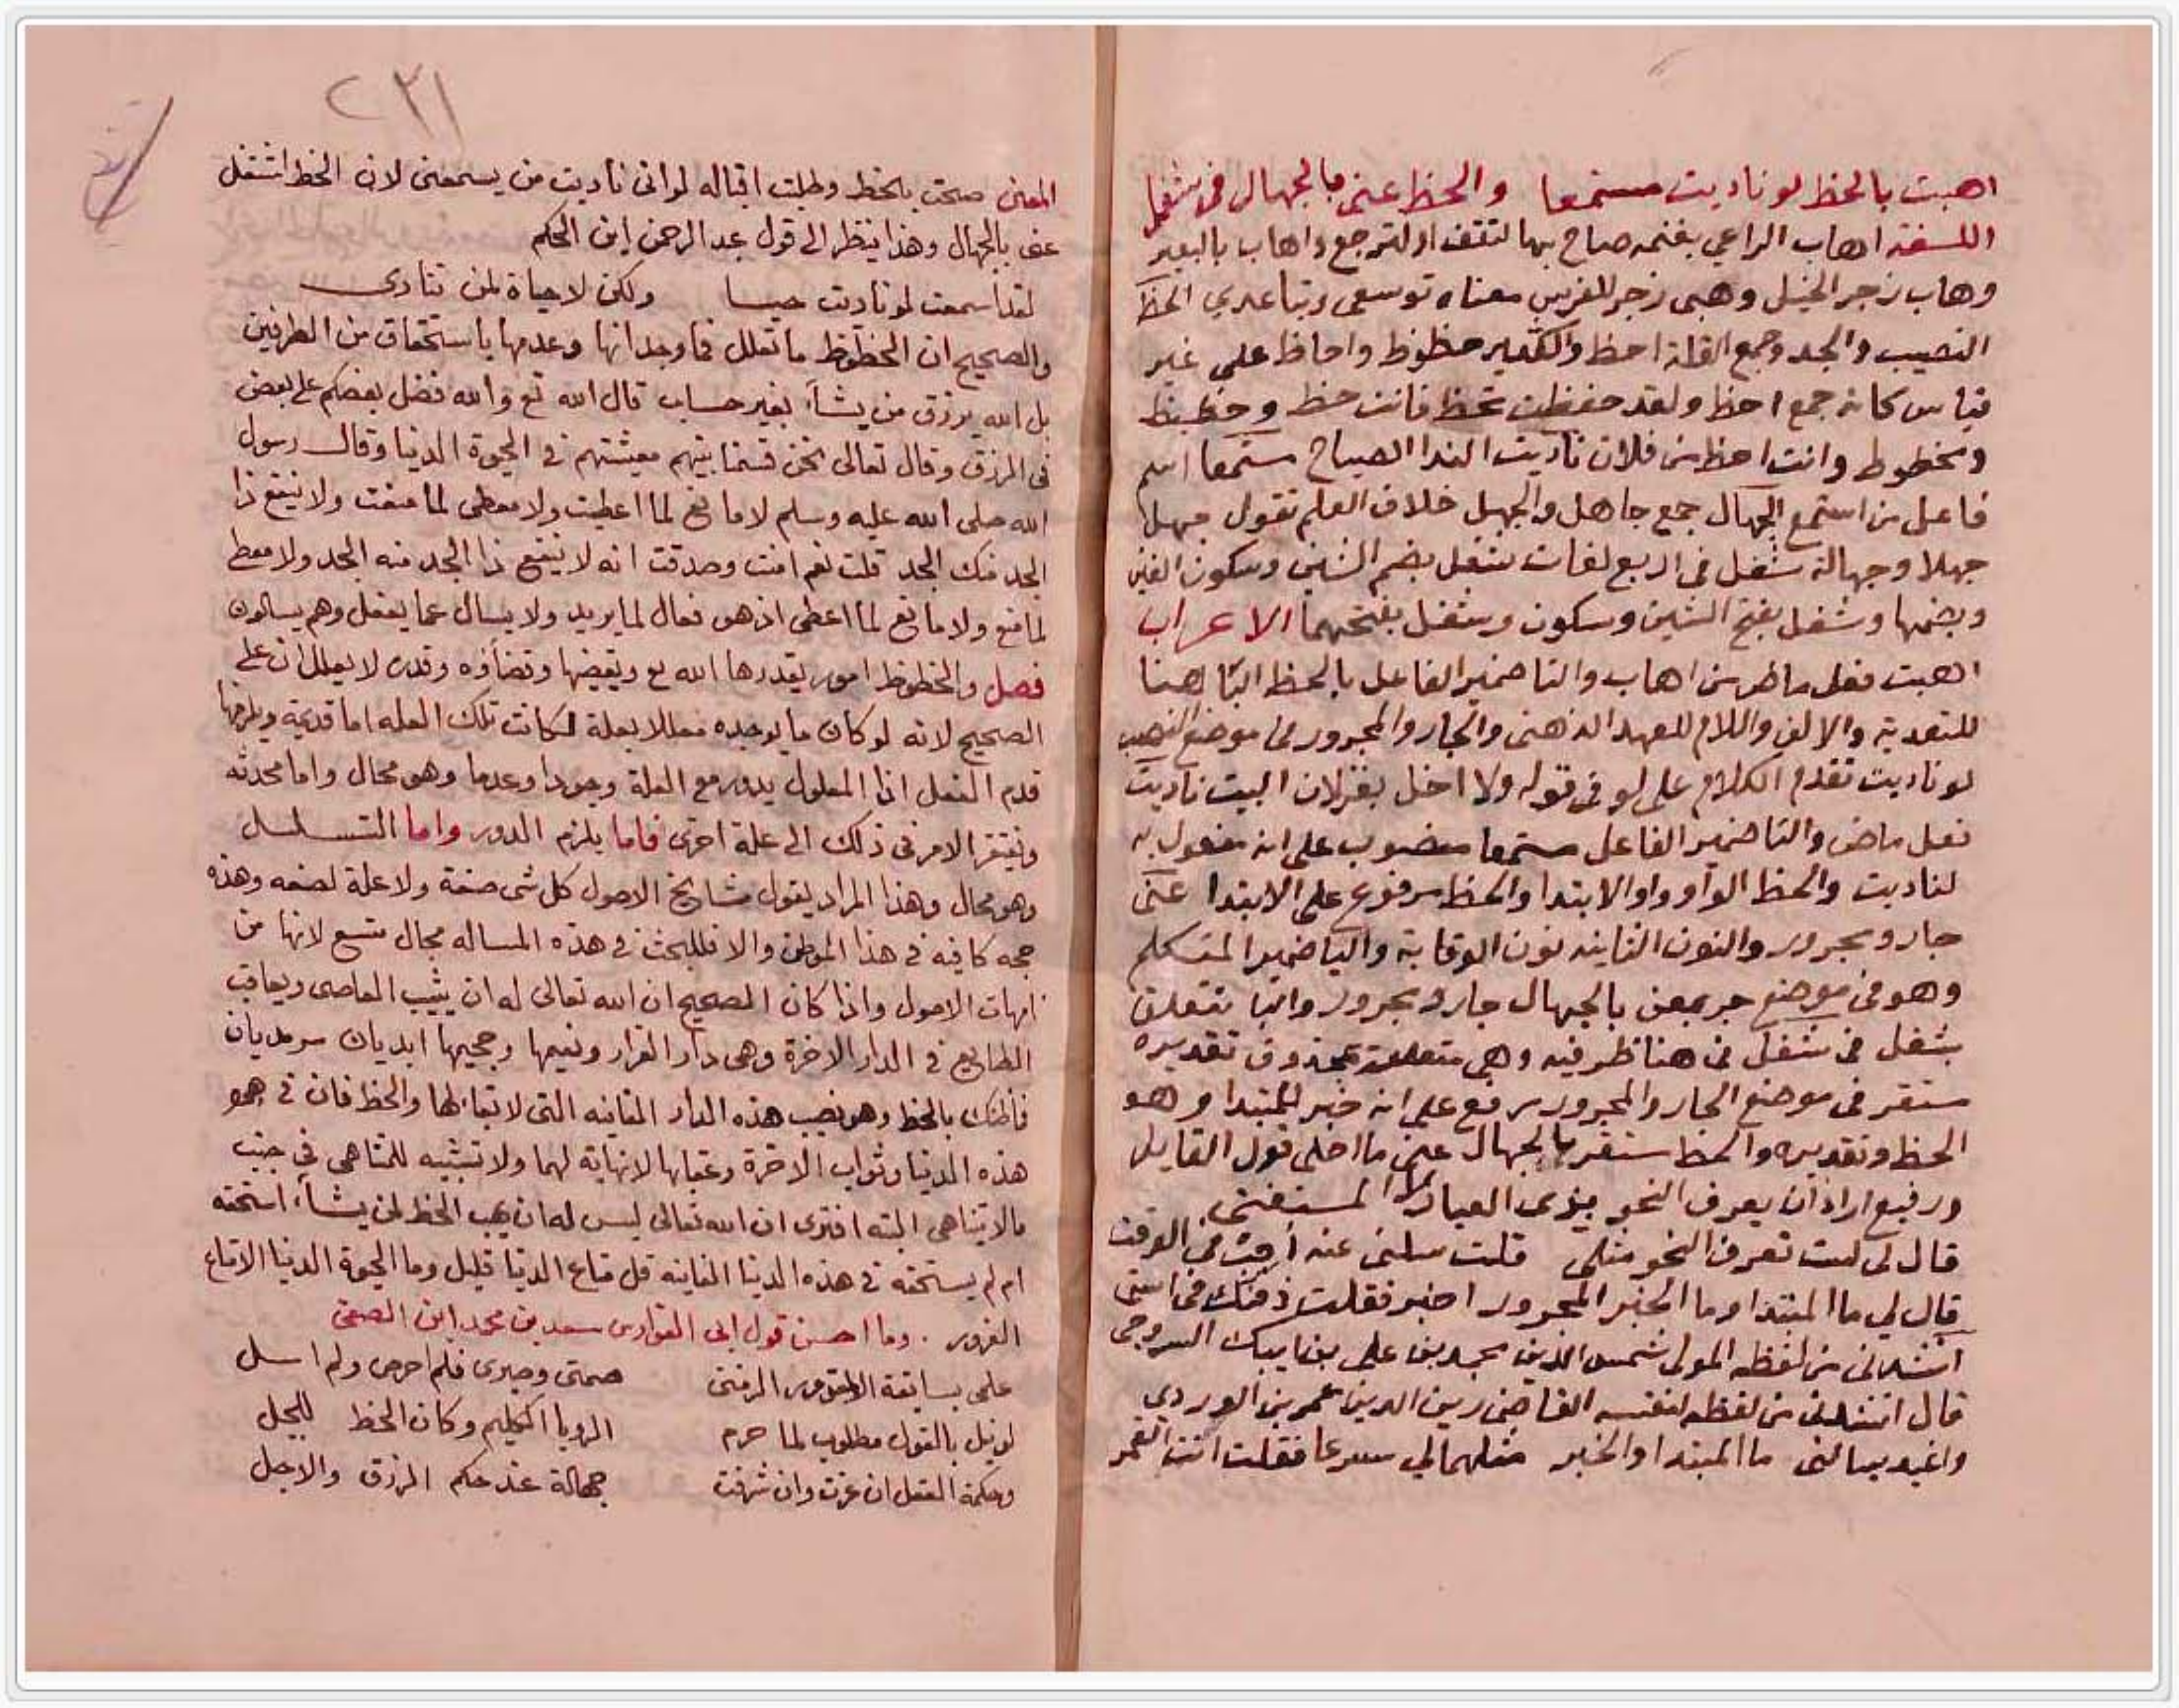 اهبت بالحظ لو ناديت مستمعا والحظ عني بالجهال في شغل
اللغة اهاب الراعي بغنمه صاح بها لتقف او لترجع واهاب بالبعير
وهاب زجر الخيل وهبى زجر للفرس معناه توسعى وتباعدي الحظ
النصيب والجد وجمع القلة احظ والكثير حظوظ واحاظ على غير
قياس كانه جمع احظ ولقد حفظت تحظ فانت حظ وحظيظ
ومحظوظ وانت احظ من فلان ناديت الندا الصياح مستمعا اسم
فاعل من استمع الجهال جمع جاهل والجهل خلاف العلم تقول جهل
جهلا وجهالة شغل فى اربع لغات شغل بضم الشين وسكون الغين
وبضمها وشغل بفتح الشين وسكون وشغل بفتحهما الاعراب
اهبت فعل ماض من اهاب والتا ضمير الفاعل بالحظ البا هنا
للتعدية والالف واللام للعهد الذهنى والجار والمجرور فى موضع النصب
لو ناديت تقدم الكلام على لو فى قوله ولا اخل بغزلان البيت ناديت
فعل ماض والتا ضمير الفاعل مستمعا منصوب على انه مفعول به
لناديت والحظ الواو واو الابتدا والحظ مرفوع على الابتدا عنى
جار ومجرور والنون الثانيه نون الوقاية واليا ضمير المتكلم
وهو فى موضع جر بعن بالجهال جار ومجرور والبا تتعلق
بشغل فى شغل فى هنا ظرفيه وهى متعلقة بمحذوف تقديره
مستقر فى موضع الجار والمجرور رفع على انه خبر للمبتدا وهو
الحظ وتقديره والحظ مستقر بالجهال عنى ما احلى قول القايل
ورفيع اراد ان يعرف النحو بزى العيار لا المستفتى
قال لى لست تعرف النحو مثلى قلت سلنى عنه اجبت فى الوقت
قال لي ما المبتدا وما الخبر المجرور اخبر فقلت ذقنك فى استى
انشدنى من لفظه المولى شمس الدين محمد بن على بن ايبك السروجى
قال انشدنى من لفظه لنفسه القاضى زين الدين عمر بن الوردي
واغيد يسالنى ما المبتدا والخبر مثلهما لي مسرعا فقلت انت القمر
٢٣١
المعنى صحت بالحظ وطلبت اقباله لو انى ناديت من يسمعنى لان الحظ اشتغل
عنى بالجهال وهذا ينظر الى قول عبد الرحمن ابن الحكم
لقد اسمعت لو ناديت حيا ولكن لا حياة لمن تنادى
والصحيح ان الحظوظ ما تعلل فما وجدانها وعدمها باستحقاق من الطرفين
بل الله يرزق من يشاء بغير حساب قال الله تع والله فضل بعضكم على بعض
فى الرزق وقال تعالى نحن قسمنا بينهم معيشتهم فى الحيوة الدنيا وقال رسول
الله صلى الله عليه وسلم لا مانع لما اعطيت ولا معطى لما منعت ولا ينفع ذا
الجد منك الجد قلت نعم امنت وصدقت انه لا ينفع ذا الجد منه الجد ولا معط
لما منع ولا مانع لما اعطى اذ هو فعال لما يريد ولا يسال عما يفعل وهم يسالون
فصل والحظوظ امور يقدرها الله تع ويقضيها وقضاؤه وقدره لا يعللان على
الصحيح لانه لو كان ما يوجده معللا بعلة لكانت تلك العله اما قديمة ويلزمها
قدم الفعل اذ المعلول يدور مع العلة وجودا وعدما وهو محال واما محدثه
ويفتقر الامر فى ذلك الى علة اخرى فاما يلزم الدور واما التسلسل
وهو محال وهذا المراد بقول مشايخ الاصول كل شى صنعة ولا علة لصنعه وهذه
حجه كافيه فى هذا الموطن والا فللبحث فى هذه المساله مجال متسع لانها من
امهات الاصول واذا كان الصحيح ان الله تعالى له ان يثيب العاصى ويعاقب
الطايع فى الدار الاخرة وهى دار القرار ونعيمها وجحيمها ابديان سرمديان
فما ظنك بالحظ وهو نصيب هذه الدار الفانيه التى لا بقا لها والحظ فان فى
هذه الدنيا وثواب الاخرة وعقابها لا نهاية لهما ولا تشبيه للمتناهى فى جنب
مالا يتناهى البته افترى ان الله تعالى ليس له ان يهب الحظ لمن يشاء استحقه
ام لم يستحقه فى هذه الدنيا الفانيه قل متاع الدنيا قليل وما الحيوة الدنيا الا متاع
الغرور . وما احسن قول ابى الفوارس سعد بن محمد ابن الصيفى
علمى بسابقة المقدور الزمنى صمتى وصبرى فلم احرص ولم اسل
لو نيل بالقول مطلوب لما حرم الرويا الكليم وكان الحظ للجبل
وحكمة العقل ان عزت وان شرفت جهالة عند حكم الرزق والاجل